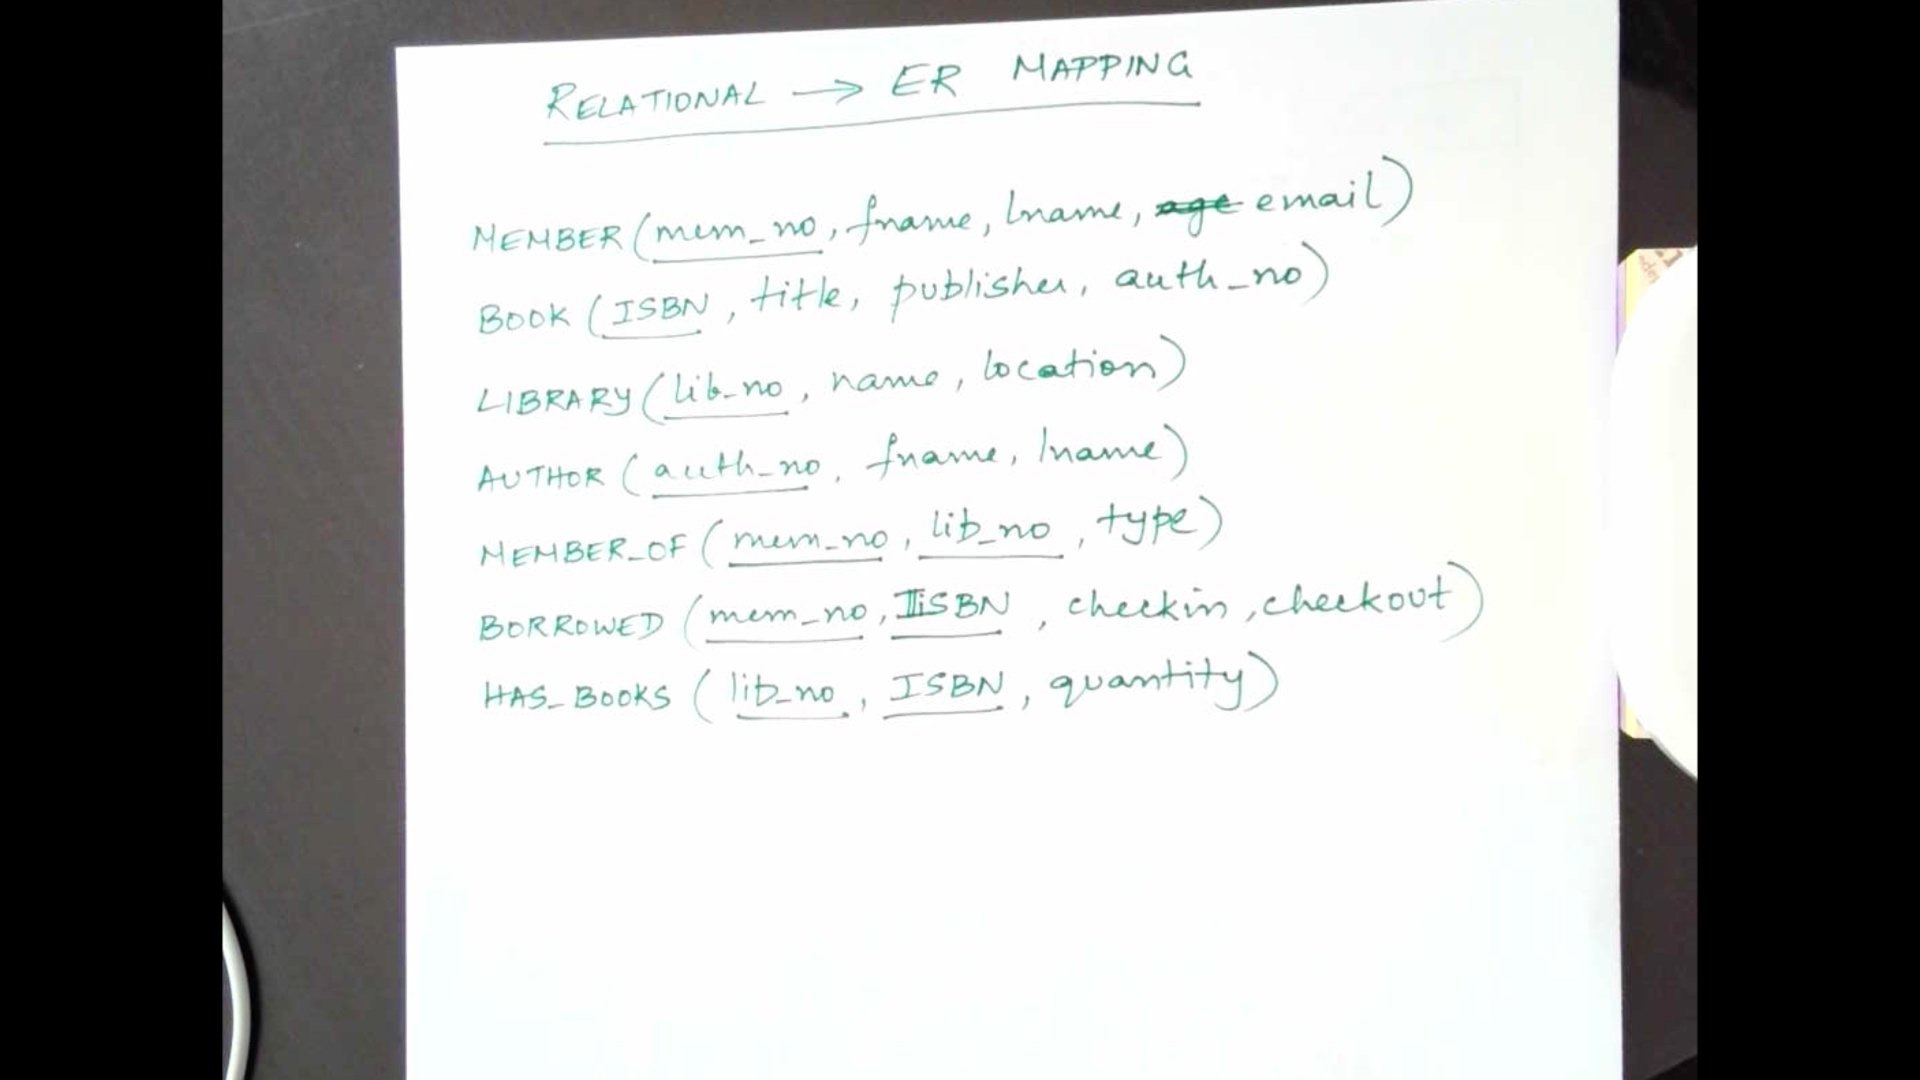 RELATIONAL → ER MAPPING
MEMBER (mem_no, fname, lname, age email)
BOOK (ISBN, title, publisher, auth_no)
LIBRARY (lib_no, name, location)
AUTHOR (auth_no, fname, lname)
MEMBER_OF (mem_no, lib_no, type)
BORROWED (mem_no, ISBN, checkin, checkout)
HAS_BOOKS (lib_no, ISBN, quantity)